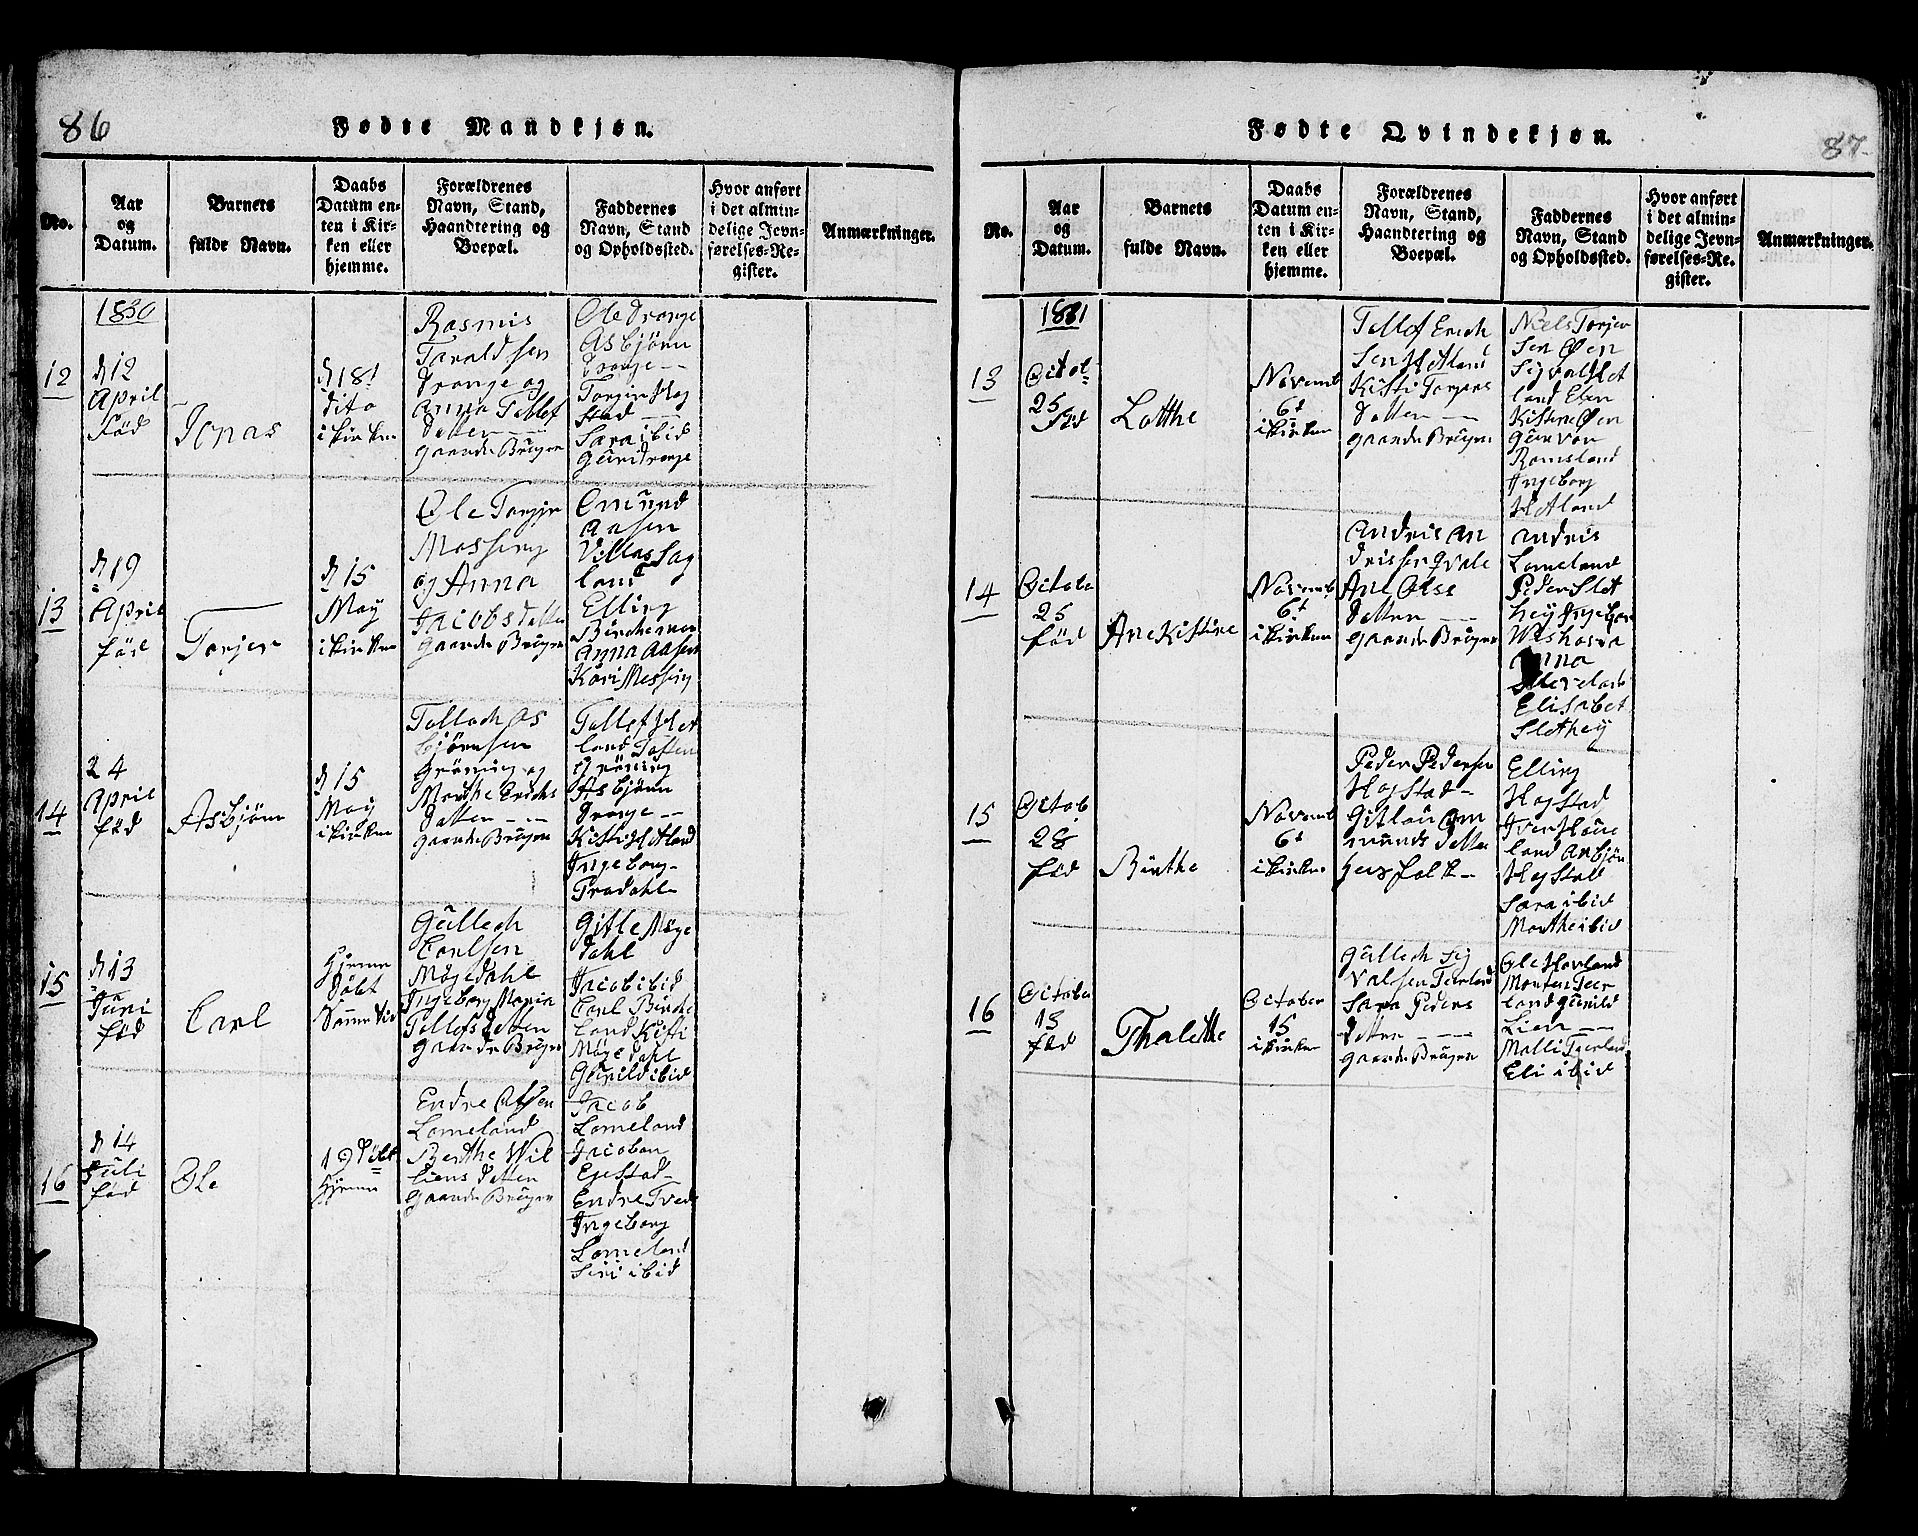 86
Fødte Mandkjøn.
No.
Aar
og
Datum.
Barnets
fulde Navn.
Daabs
Datum en-
ten i Kir-
ken eller
hjemme.
Forældrenes
Navn, Stand,
Haandtering og
Boepæl.
Faddernes
Navn, Stand
og Opholdssted.
Hvor anført
i det almin-
delige Jevn-
førelses-Re-
gister.
Anmærkninger.
1830
12
d 12
April
Fød
Jonas
d 18
dito
i kirken
Rasmis
Taraldsen
Drange og
Anna Tollef
Datter
gaarde Brüger
Ole Drange
Asbjörn
Drange
Torjer Hog
stad
Sara ibid
Guri Drange
13
d 19
April
fød
Torjer
d 15
May
i kirken
Ole Torjer
Messing
og Anna
Jacobs Datter
gaarde Brüger
Omünd
Aasen
Villas Sag
land
Elling
Birchemoe
Anna Aasen
Kari Messing
14
24
April
fød
Asbjörn
d 15
May
i kirken
Tollach As
björnsen
Gröning og
Marthe Erichs
Datter
gaarde Brüger
Tollef Het
land Totten
Gröning
Asbjörn
Drange
Kisti Hetland
Ingeborg
Prødahl
15
d 13
Juni
fød
Carl
Hjemme
Döbt
Samme Dag
Güllech
Carlsen
Mögedahl
Ingeborg Maria
Tollefs Datter
gaarde Brüger
Gitle Möge
dahl
Jacob ibid
Carl Birche
land Kisti
Mögedahl
Gunild ibid
16
d 14
Juli
fød
Ole
19 Döbt
Hjemme
Endre Olsen
Lomeland
Berthe Wil
liens Datter
gaarde Brüger
Jacob
Lomeland
Jacob
Egestad
Endre Tvedt
Ingeborg
Lomeland
Siri ibid
Fødte Qvindekjøn.
87
No.
Aar
og
Datum.
Barnets
fulde Navn.
Daabs
Datum en-
ten i Kir-
ken eller
hjemme.
Forældrenes
Navn, Stand,
Haandtering og
Boepæl.
Faddernes
Navn, Stand
og Opholdssted.
Hvor anført
i det almin-
delige Jevn-
førelses-Re-
gister.
Anmærkninger.
1831
13
Octob
25
Fød
Lotthe
Novemb
6t
i kirken
Tollef Erich
Sen Hetland
Kisti Torjers
Datter
gaarde Brüger
Niels Torjer
Sen Øen
Sigval Het
land Elen
Kistine Øen
Gunvor
Romsland
Ingeborg
Hetland
14
October
25
fød
Ane Kistine
Novemb
6t
i kirken
Andris An
drissen Qvale
Ane Oles
Datter
gaarde Brüger
Andris
Lomeland
Peder Slet
hey Ingebor
Anna
Elisabet
Slethey
15
Octob
28
fød
Birthe
Novemb
6t
i kirken
Peder Pedersen
Hogstad
Gitlou Om
munds Datter
husfolk
Elling
Hogstad
Iver Høüe
land Asbjön
Hogstad
Sara ibid
Marthe ibid
16
October
13
fød
Thalette
October
15
i kirken
Güllech Sig
valsen Teerland
Sara Peders
Datter
gaarde Brüger
Ole Hovland
Morten Teer
land Gunild
Lien
Malli Teerland
Eli ibid